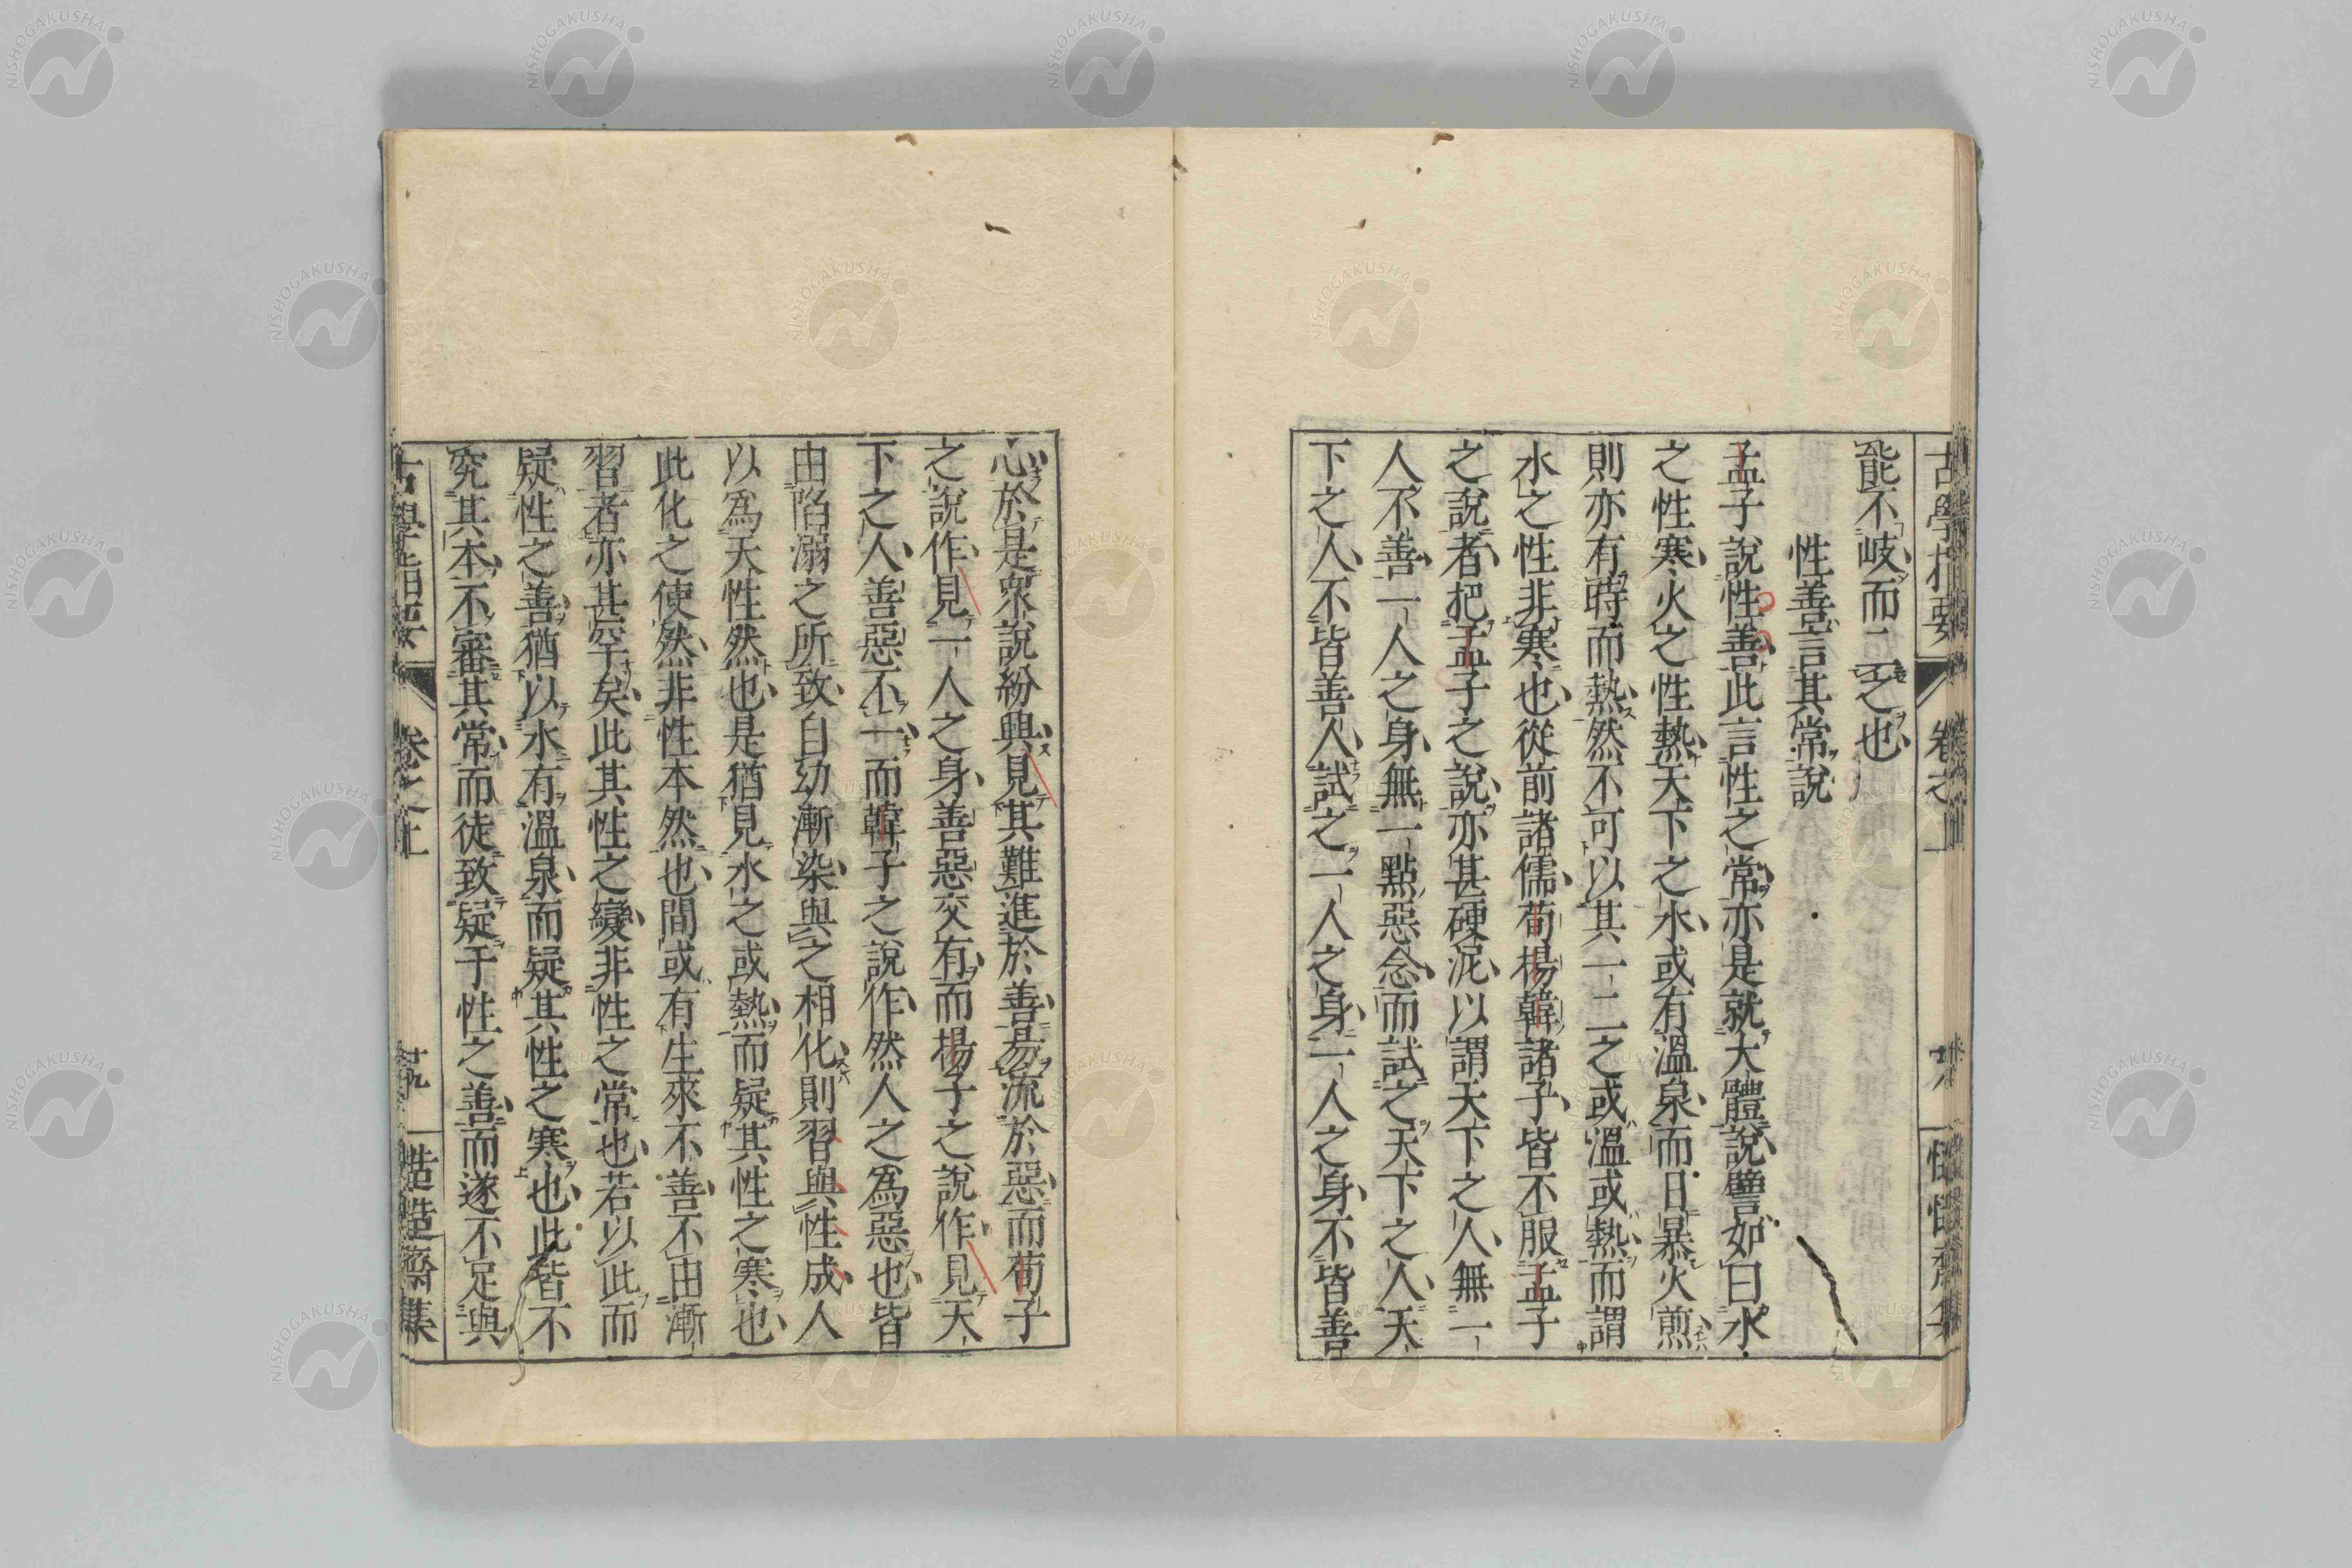 能不岐而二之也
性善言其常說
孟子說性善此言性之常亦是就大體說譬如曰水
之性寒火之性熱天下之水或有溫泉而日暴火煎
則亦有時而熱然不可以其一二之或溫或熱而謂
水之性非寒也從前諸儒荀楊韓諸子皆不服孟子
之說者把孟子之說亦甚硬泥以謂天下之人無一
人不善一人之身無一點惡念而試之天下之人天
下之人不皆善人試之一人之身一人之身不皆善
心於是眾說紛興見其難進於善易流於惡而荀子
之說作見一人之身善惡交有而楊子之說作見天
下之人善惡不一而韓子之說作然人之為惡也皆
由陷溺之所致自幼漸染與之相化則習與性成人
以為天性然也是猶見水之或熱而疑其性之寒也
此化之使然非性本然也間或有生來不善不由漸
習者亦甚罕矣此其性之變非性之常也若以此而
疑性之善猶以水有溫泉而疑其性之寒也此皆不
究其本不審其常而徒致疑于性之善而遂不足與
古學指要
卷之上
十九
慥慥齋集
NISHOGAKUSHA